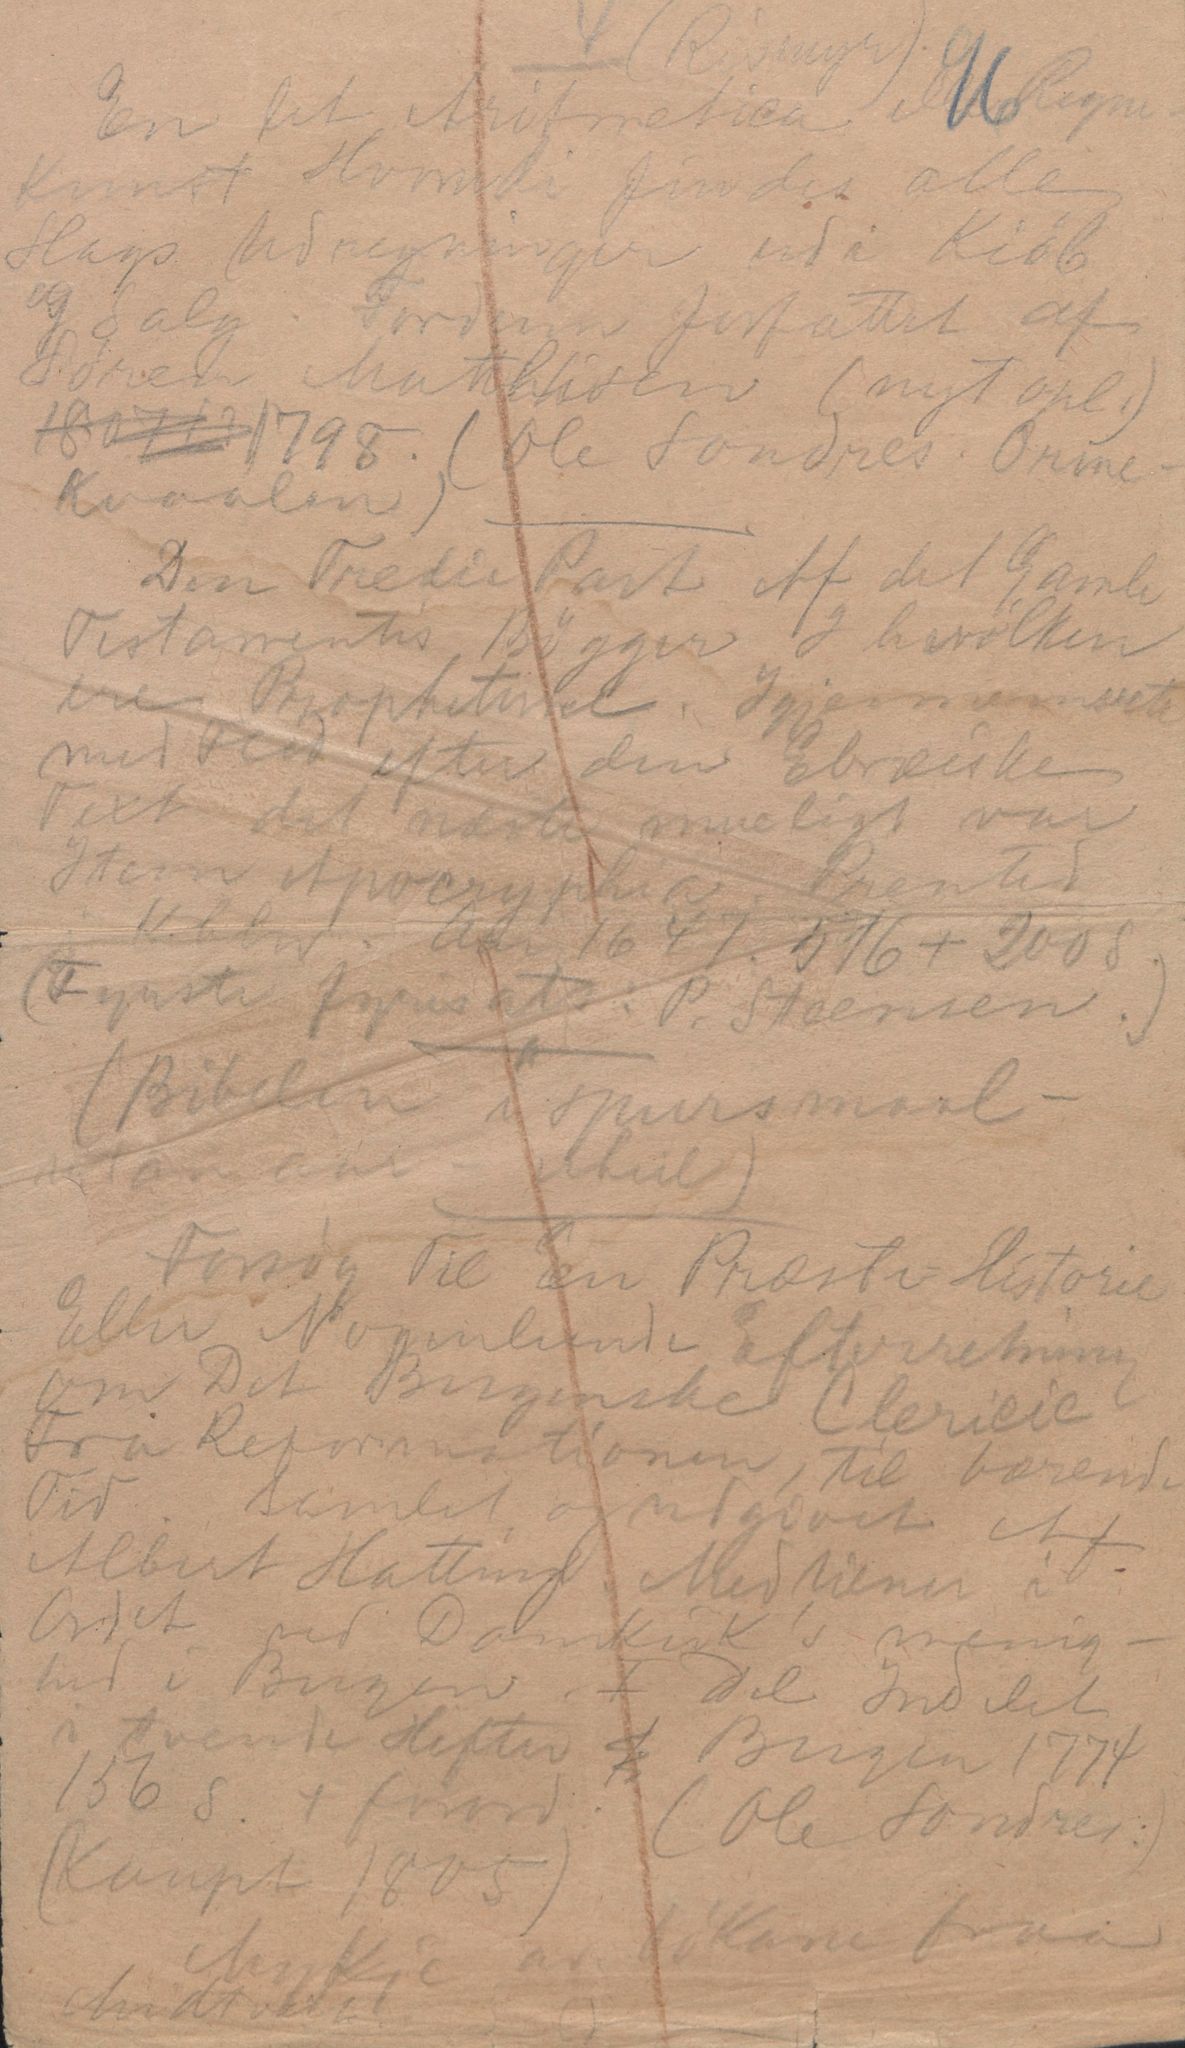 V (Röseng).
En let Aritmetica Regne-
Kunst Hvorudi findes alle
Slags Udregninger udi Kiöb
og Salg. Fordum forfattet af
Sören Matthisen (nyt opl.)
1798. (Ole Sondres. Orme-
Kvaalen)
Den Tredie Part Af det Gamle
Testamentis Bögger I hwilken
ere Propheterne. Igiennemseete
med Flid efter den Ebræiske
Text det næste mueligt var
Item Apocryphia. Prentid
i Kbhn. Aar 1647. 576 + 200 S.
(Fyrste : P. Steensen.)
(Bibelen i spursmaal -
utan aar - )
Forsög Til En Præste-Historie
Eller Nogenlunde Efterretning
om Det Bergenske Clericie
Fra Reformationen, til værende
Tid. Samlet og udgivet Af
Albert Hatting. Medtiener i
Ordet ved Domkirk's menig-
hed i Bergen. I Del Indelet
i tvende Hefter Bergen 1774
156 S. + forord. (Ole Sondres:)
(Kaupt 1805)
Mykje av bökane fraa